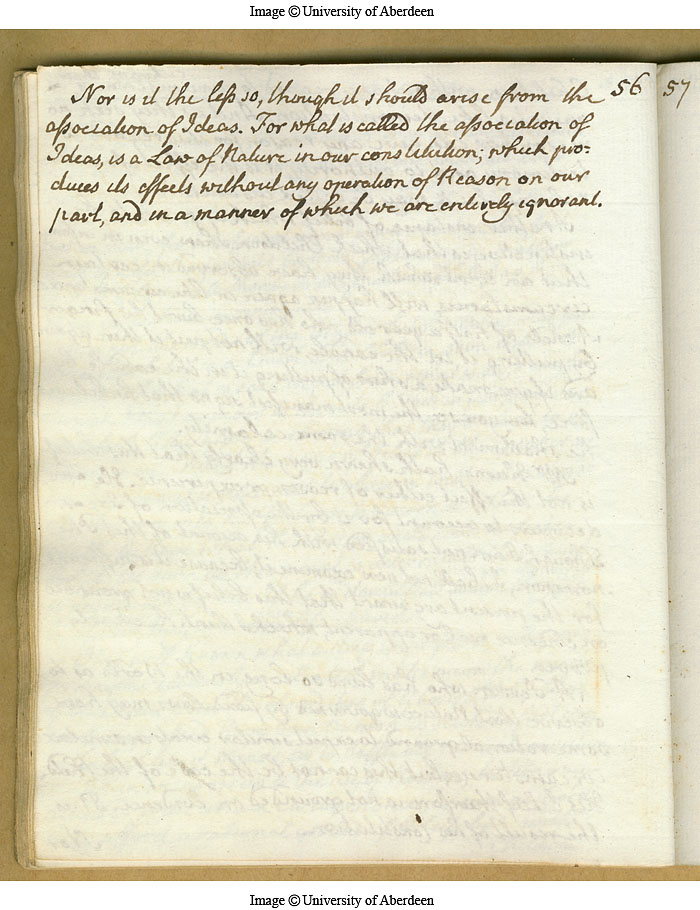 Image © University of Aberdeen
56 57
Nor is it the leſs so, though it should arise from the
aſsociation of Ideas. For what is called the aſsociation of
Ideas, is a Law of Nature in our constitution; which pro-
duces its effects without any operation of Reason on our
part, and in a manner of which we are entirely ignorant.
Image © University of Aberdeen